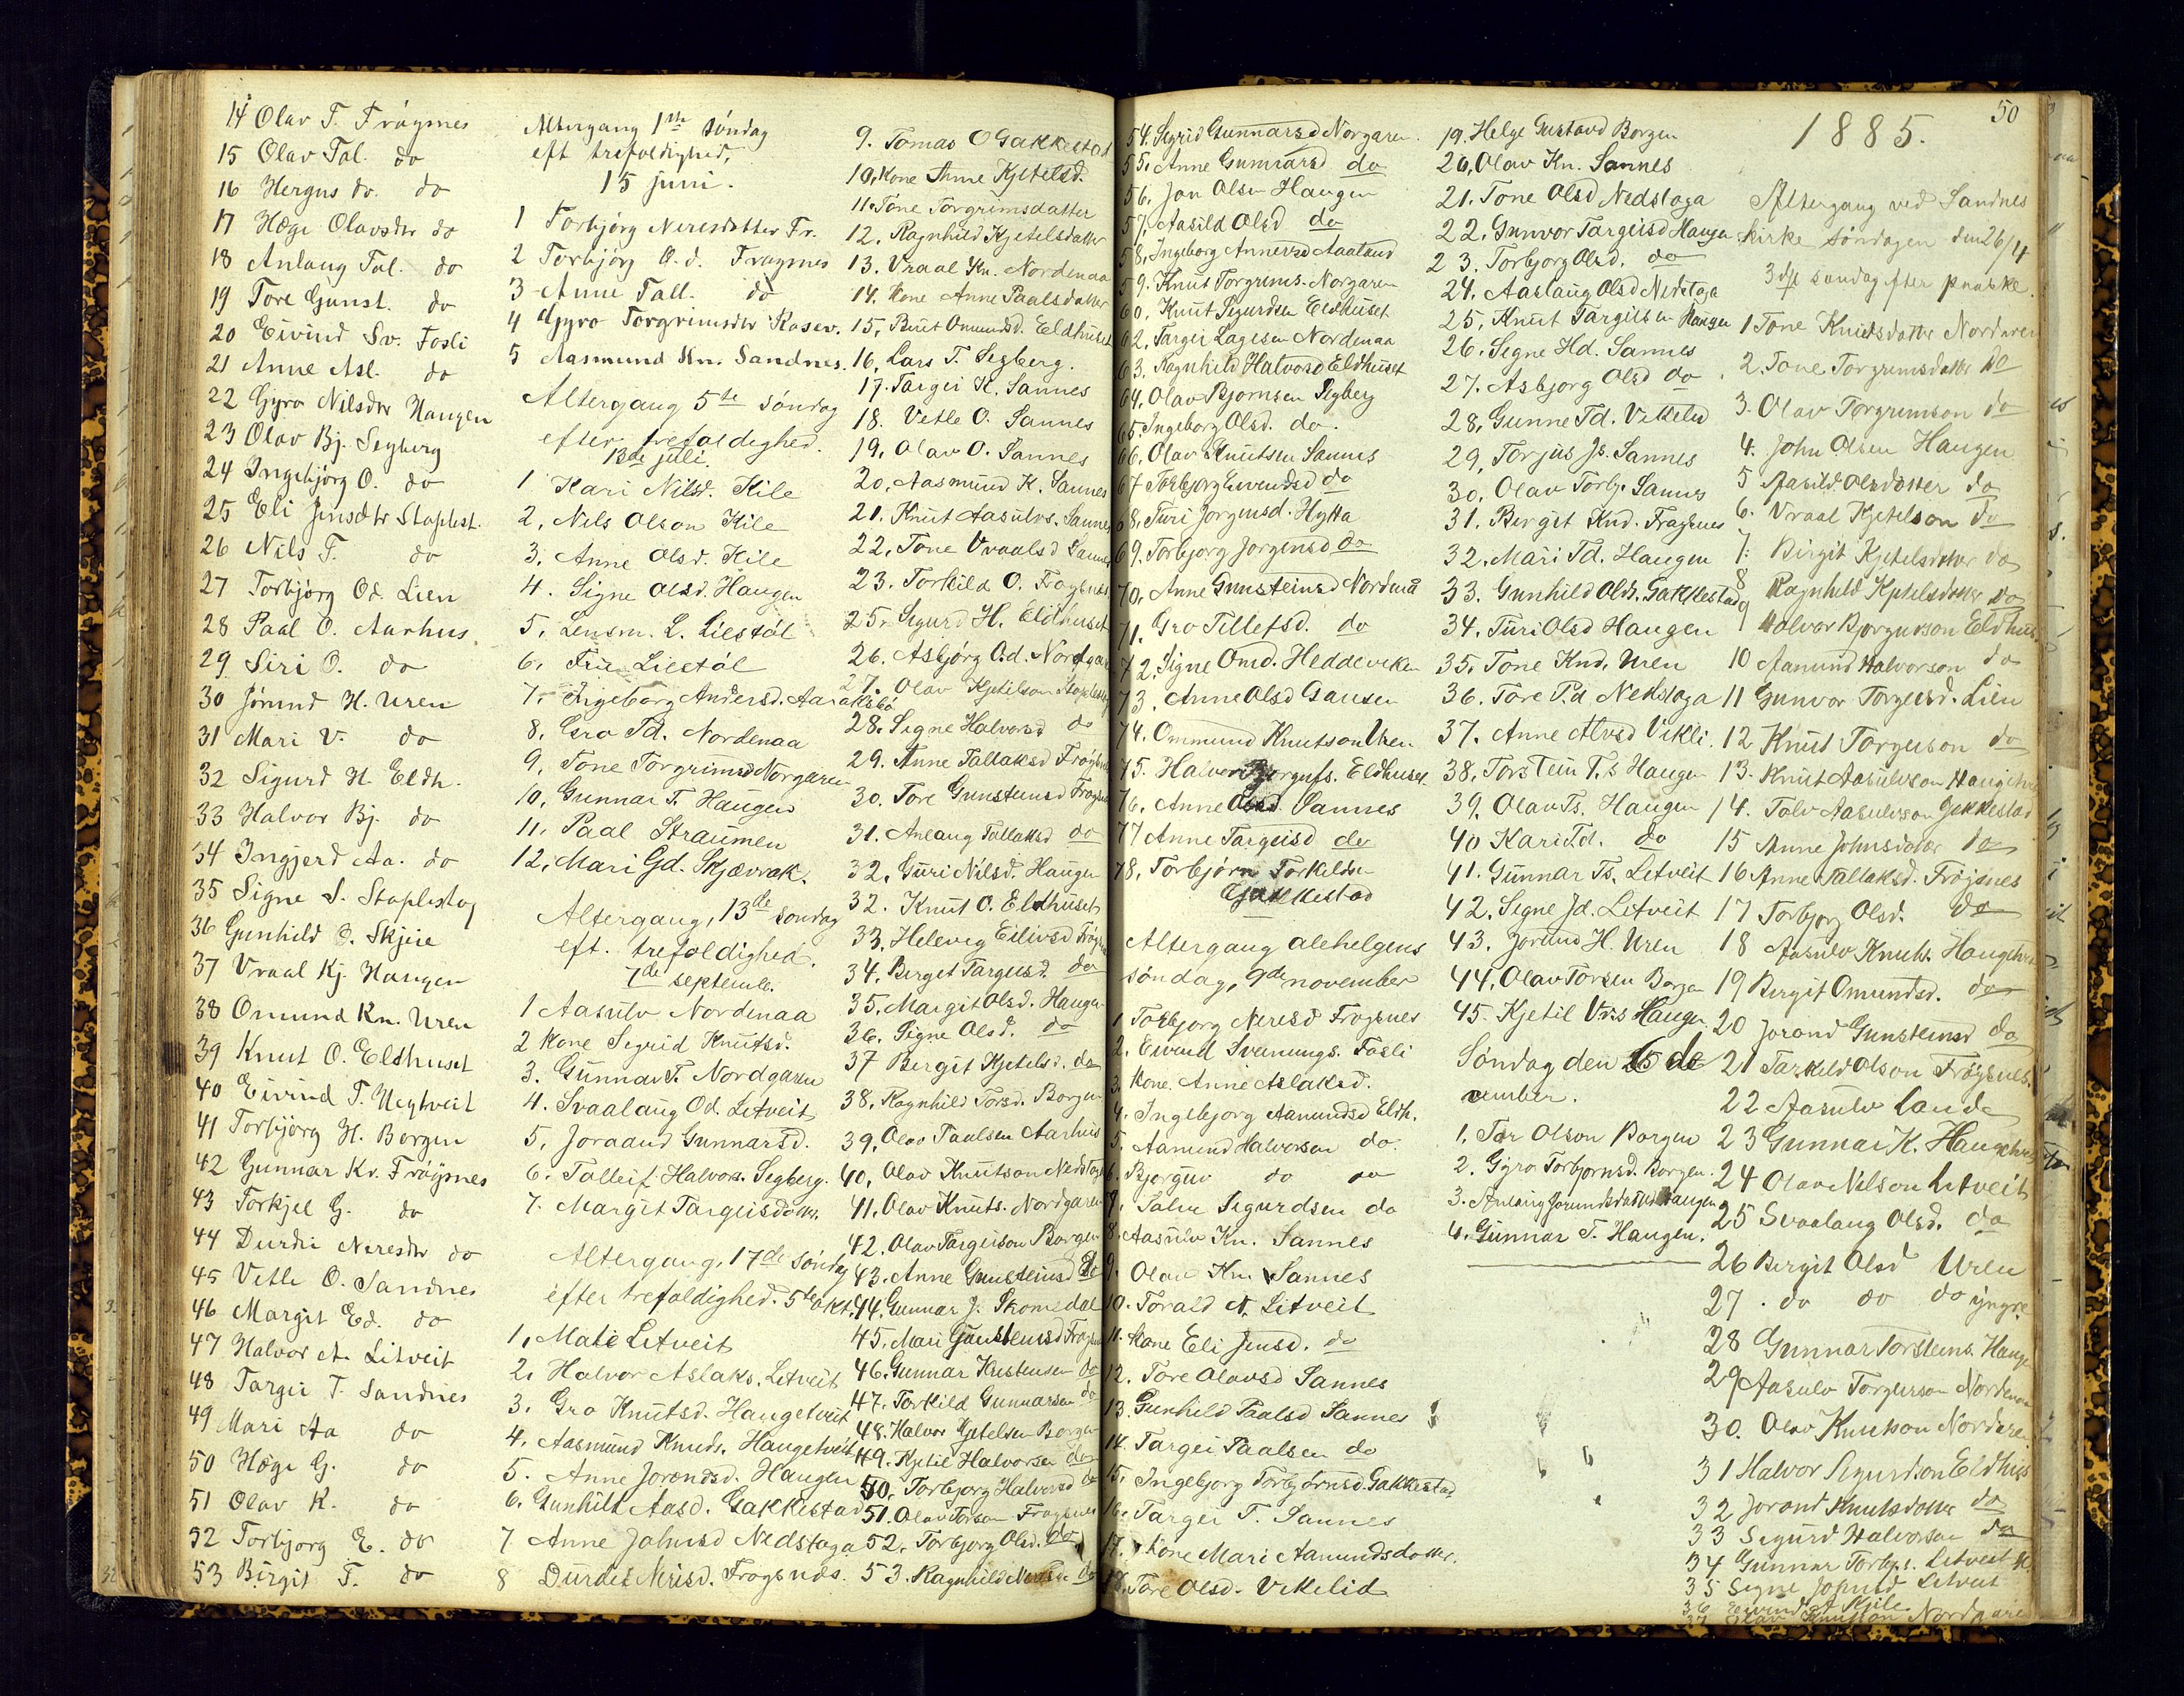 14 Olav T. Frøysnes
15 Olav Tal. do
16 Hergus do. do
17 Hæge Olavsdtr do
18 Anlaug Tal. do
19 Tore Gunst. do
20 Eivind Sv. Fosli
21 Anne Asl. do
22 Gyro Nilsdtr Haugen
23 Olav Bj. Segberg
24 Ingebjørg O. do
25 Eli Jensdtr Staplest.
26 Nils T. do
27 Torbjørg Od. Lien
28 Paal O. Aarhus
29 Siri O. do
30 Jorund H. Uren
31 Mari V. do
32 Sigurd H. Eldh.
33 Halvor Bj. do
34 Ingjerd Aa. do
35 Signe S. Staplestog
36 Gunhild O. Skjeie
37 Vraal Kj. Haugen
38 Omund Kn. Uren
39 Knut O. Eldhuset
40 Eivind T. Heytveit
41 Torbjørg H. Borgen
42 Gunnar Kr. Frøysnes
43 Torkjel G. do
44 Durdei Neresdtr do
45 Vetle O. Sandnes
46 Margit Ed. do
47 Halvor A. Litveit
48 Targei T. Sandnes
49 Mari Aa do
50 Hæge G. do
51 Olav K. do
52 Torbjorg E. do
53 Birgit T. do
Altergang 1ste søndag
eft trefoldighed,
15 juni.
1 Torbjørg Neresdatter Fr.
2 Torbjørg O. d. Frøysnes
3 Anne Tall. do
4 Gyro Torgrimsdtr Rosev.
5 Aasmund Kn. Sandnes.
Altergang 5te søndag
efter trefoldighed.
13de juli.
1 Kari Nilsd. Kile
2, Nils Olson Kile
3, Anne Olsd. Kile
4. Signe Olsd. Haugen
5, Lensm. L. Liestøl
6, Fru Liestøl
7, Ingeborg Andersd. Aarakslbø
8, Gro Td. Nordenaa
9, Tone Torgrimsd Norgaren
10, Gunnar T. Haugen
11, Paal Straumen
12, Mari Gd. Skjævrak.
Altergang, 13de søndag
eft. trefoldighed.
7de septemb.
1 Aasulv Nordenaa
2 Kone Sigrid Knutsd.
3. Gunnar T. Nordgaren
4. Svaalaug Od. Litveit
5, Joraand Gunnarsd.
6. Talleif Halvors. Segberg.
7. Margit Targeisdotter.
Altergang, 17de søndag
efter trefoldighed. 5te okt.
1, Mate Litveit
2, Halvor Aslaks. Litveit
3, Gro Knutsd. Haugetveit
4, Aasmund Knuds. Haugetveit
5. Anne Jorendsd. Haugen
6. Gunhild Aasd. Gakkestad
7 Anne Johnsd Nedstoga
8 Durdei Nerisd. Frøysnes.
9. Tomas O Gakkestad
10, Kone Anne Kjetelsd.
11. Tone Torgrimsdatter
12. Ragnhild Kjetelsdatter
13. Vraal Kn. Nordenaa
14. Kone Anne Paalsdatter
15, Birit Omundsd. Eldhuset
16, Lars T. Segberg.
17. Targei K. Sannes
18. Vetle O. Sannes
19, Olav O. Sannes
20, Aasmund K. Sannes
21. Knut Aasulvs. Sannes
22, Tone Vraalsd Sannes
23. Torkild O. Frøysnes
25. Sigurd H. Eldhuset
26. Asbjørg O.d. Nordgar
27. Olav Kjetilson Staplestog
28. Segne Halvorsd do
29. Anne Tallaksd Frøysnes
30. Tore Gunsteinsd Frøysnes
31. Anlaug Tallaksd do
32. Guri Nilsd. Haugen
32. Knut O. Eldhuset
33. Helevig Eilivsd Frøysn
34. Berget Targeisd. do
35. Margit Olsd. Haugen
36. Signe Olsd. do
37 Bergit Kjetelsd. do
38. Ragnhild Torsd. Borgen
39. Olav Paulsen Aarhus
40, Olav Knutson Nedstoga
41. Olav Knuts. Nordgaren
42. Olav Targeison Borgen
43. Anne Gunsteinsd do
44. Gunnar J. Skomedal
45. Mari Gunsteinsd Frøysn
46. Gunnar Kristensen do
47. Torkild Gunnarsen do
48. Halvor Kjetelsen Borgen
49. Kjetil Halvorsen do
50. Torbjorg Halvorsd do
51. Olav Torson Frøysnes
52. Torbjorg Olsd. do
53. Ragnhild do
50
54. Sigrid Gunnarsd Norgaren.
55. Anne Gunnarsd do
56. Jon Olsen Haugen
57, Aasild Olsd do
58, Ingeborg Annevsd Aaaland
59. Knut Torgrims. Norgaren
60. Knut Sigurdsen Eldhuset
62, Targei Lagesen Nordenaa
63. Ragnhild Halvorsd Eldhuset
64. Olav Bjornsen Segberg
65. Ingeborg Olsd. do.
66. Olav Knutsen Sannes
67 Torbjorg Eivendsd do
68. Turi Jorgensd. Hytta
69. Torbjorg Jorgensd do
70. Anne Gunsteinsd Nordenaa
71. Gro Tellefsd. do
72. Signe Omd. Heddeviken
73. Anne Olsd Gausen
74. Ommund Knutson Uren
75. Halvor Borgufs. Eldhuset
76. Anne Olsd. Sannes
77 Anne Targeisd do
78, Torbjørn Torkildsen
Gjakkestad
Altergang alehelgens
søndag, 9de november
1 Torbjorg Neresd Frøysnes
2. Eivend Sveinungs. Fosli
3. Kone. Anne Aslaksd.
4. Ingebjorg Aamundsd Eldh.
5. Aamund Halvorsen do.
6. Bjorguv do do
7, Salve Sigurdsen do
8. Aasulv Kn. Sannes
9. Olav Kn. Sannes
10. Torald N. Litveit
11. Kone Eli Jensd. do
12. Tore Olavsd Sannes
13. Gunhild Paalsd Sannes
14. Targei Paalsen do
15. Ingebjorg Torbjørnsd. Gakkestad
16. Targei T. Sannes
17. Kone Mari Aamundsdotter.
18. Tore Olsd. Vikelid
19. Helge Gustavd Borgen
20, Olav Kn. Sannes
21. Tone Olsd Nedstoga
22. Gunvor Targeisd Haugen
23. Torbjorg Olsd. do
24. Aaslaug Olsd Nedstoga
25, Knut Targeisen Haugen
26. Segne Hd. Sannes
27. Asbjorg Olsd do
28, Gunne Td. Vikelid
29, Torjus Js. Sannes
30. Olav Torbj. Sannes
31. Birgit Knd. Frøysnes
32. Mari Td. Haugen
33. Gunhild Olds. Gakkestad
34. Turi Olsd Haugen
35. Tone Knd. Uren
36. Tore P.d Nedstoga
37. Anne Alvsd Vikli.
38. Torstein T.s Haugen
39. Olav Ts. Haugen
40 Kari Td. do
41. Gunnar Ts. Litveit
42. Segne Jd. Litveit
43. Jorund H. Uren
44. Olav Torsen Borgen
45. Kjetil Vr.s Haugen.
Søndag den de
cember.
1. Tor Olson Borgen
2. Gyro Torbjornsd. Borgen.
3. Anlaug Jorundsdatter Haugen
4. Gunnar T. Haugen.
1885.
Altergang ved Sandnes
kirke søndagen den 26/4
3die søndag efter paaske.
1 Tone Knutsdatter Nordaren
2. Tone Torgrimsdatter do
3. Olav Torgrimson do
4. John Olsen Haugen
5 Aasild Olsdotter do
6. Vraal Kjetelson do
7. Birgit Kjetelsdotter do
8 Ragnhild Kjetelsdotter do
9 Halvor Bjorguvson Eldhus.
10 Aamund Halvorson do
11 Gunvor Torgeisd. Lien
12 Knut Torgerson do
13. Knut Aasulvson Haugetv
14. Talv Aasulvson Gakkestad
15 Anne Johnsdotter do
16 Anne Tallaksd. Frøjsnes
17 Torbjorg Olsd. do
18 Aasulv Knuts. Haugetve
19 Bergit Omundsd. do
20 Jorond Gunsteinsd do
21 Tarkeld Olson Frøysnes.
22 Aasulv Lande
23 Gunnar K. Haugetvei
24 Olav Nilson Litveit
25 Svaalaug Olsd. do
26 Bergit Olsd Uren
27 . do do do yngre
28 Gunnar Torsteins. Hauge
29 Aasulv Torgerson Nordenaa
30. Olav Knutson Nordare
31 Halvor Sigurdson Eldhus
32 Jorond Knutsdotter do
33 Sigurd Halvorson do
34 Gunnar Torbjs. Litveit
35 Segne Johnsd Litveit
36 Eivind A Kjile
37 Olav Knutson Nordgare